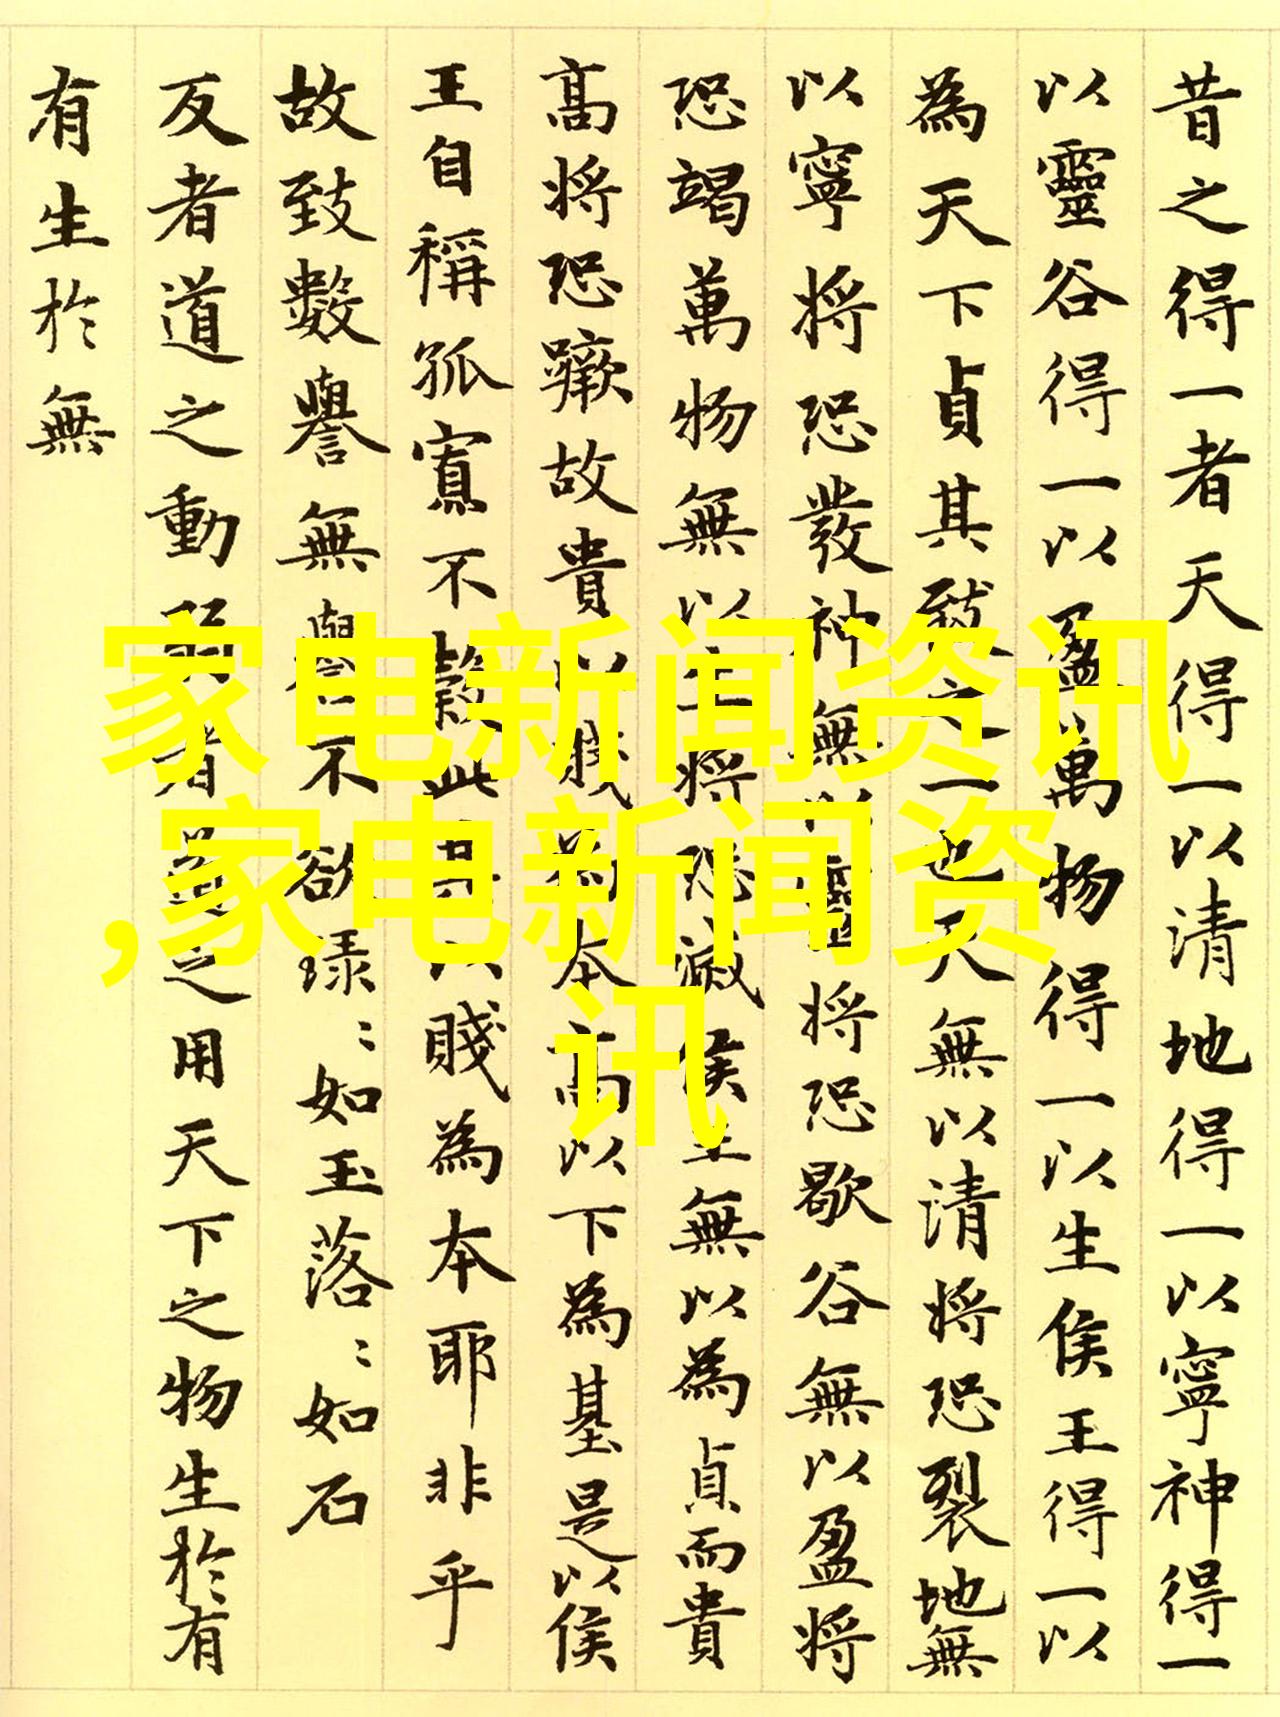 昔之得一者天得一以清地得一以寧神得一
以靈谷得一以盈萬物得一以生侯王得一以
為天下貞其致之一也天無以清將恐裂地無
以寧將恐發神無以靈將恐歇谷無以盈將
恐竭萬物無以生將恐滅侯王無以為貞而貴
高將恐蹶故貴以賤為本高以下為基是以侯
王自稱孤寡不穀此其以賤為本耶非乎
故致數譽無譽不欲琭〻如玉落〻如石
反者道之動弱者道之用天下之物生於有
有生於無
家电新闻资讯
,家电新闻资
讯